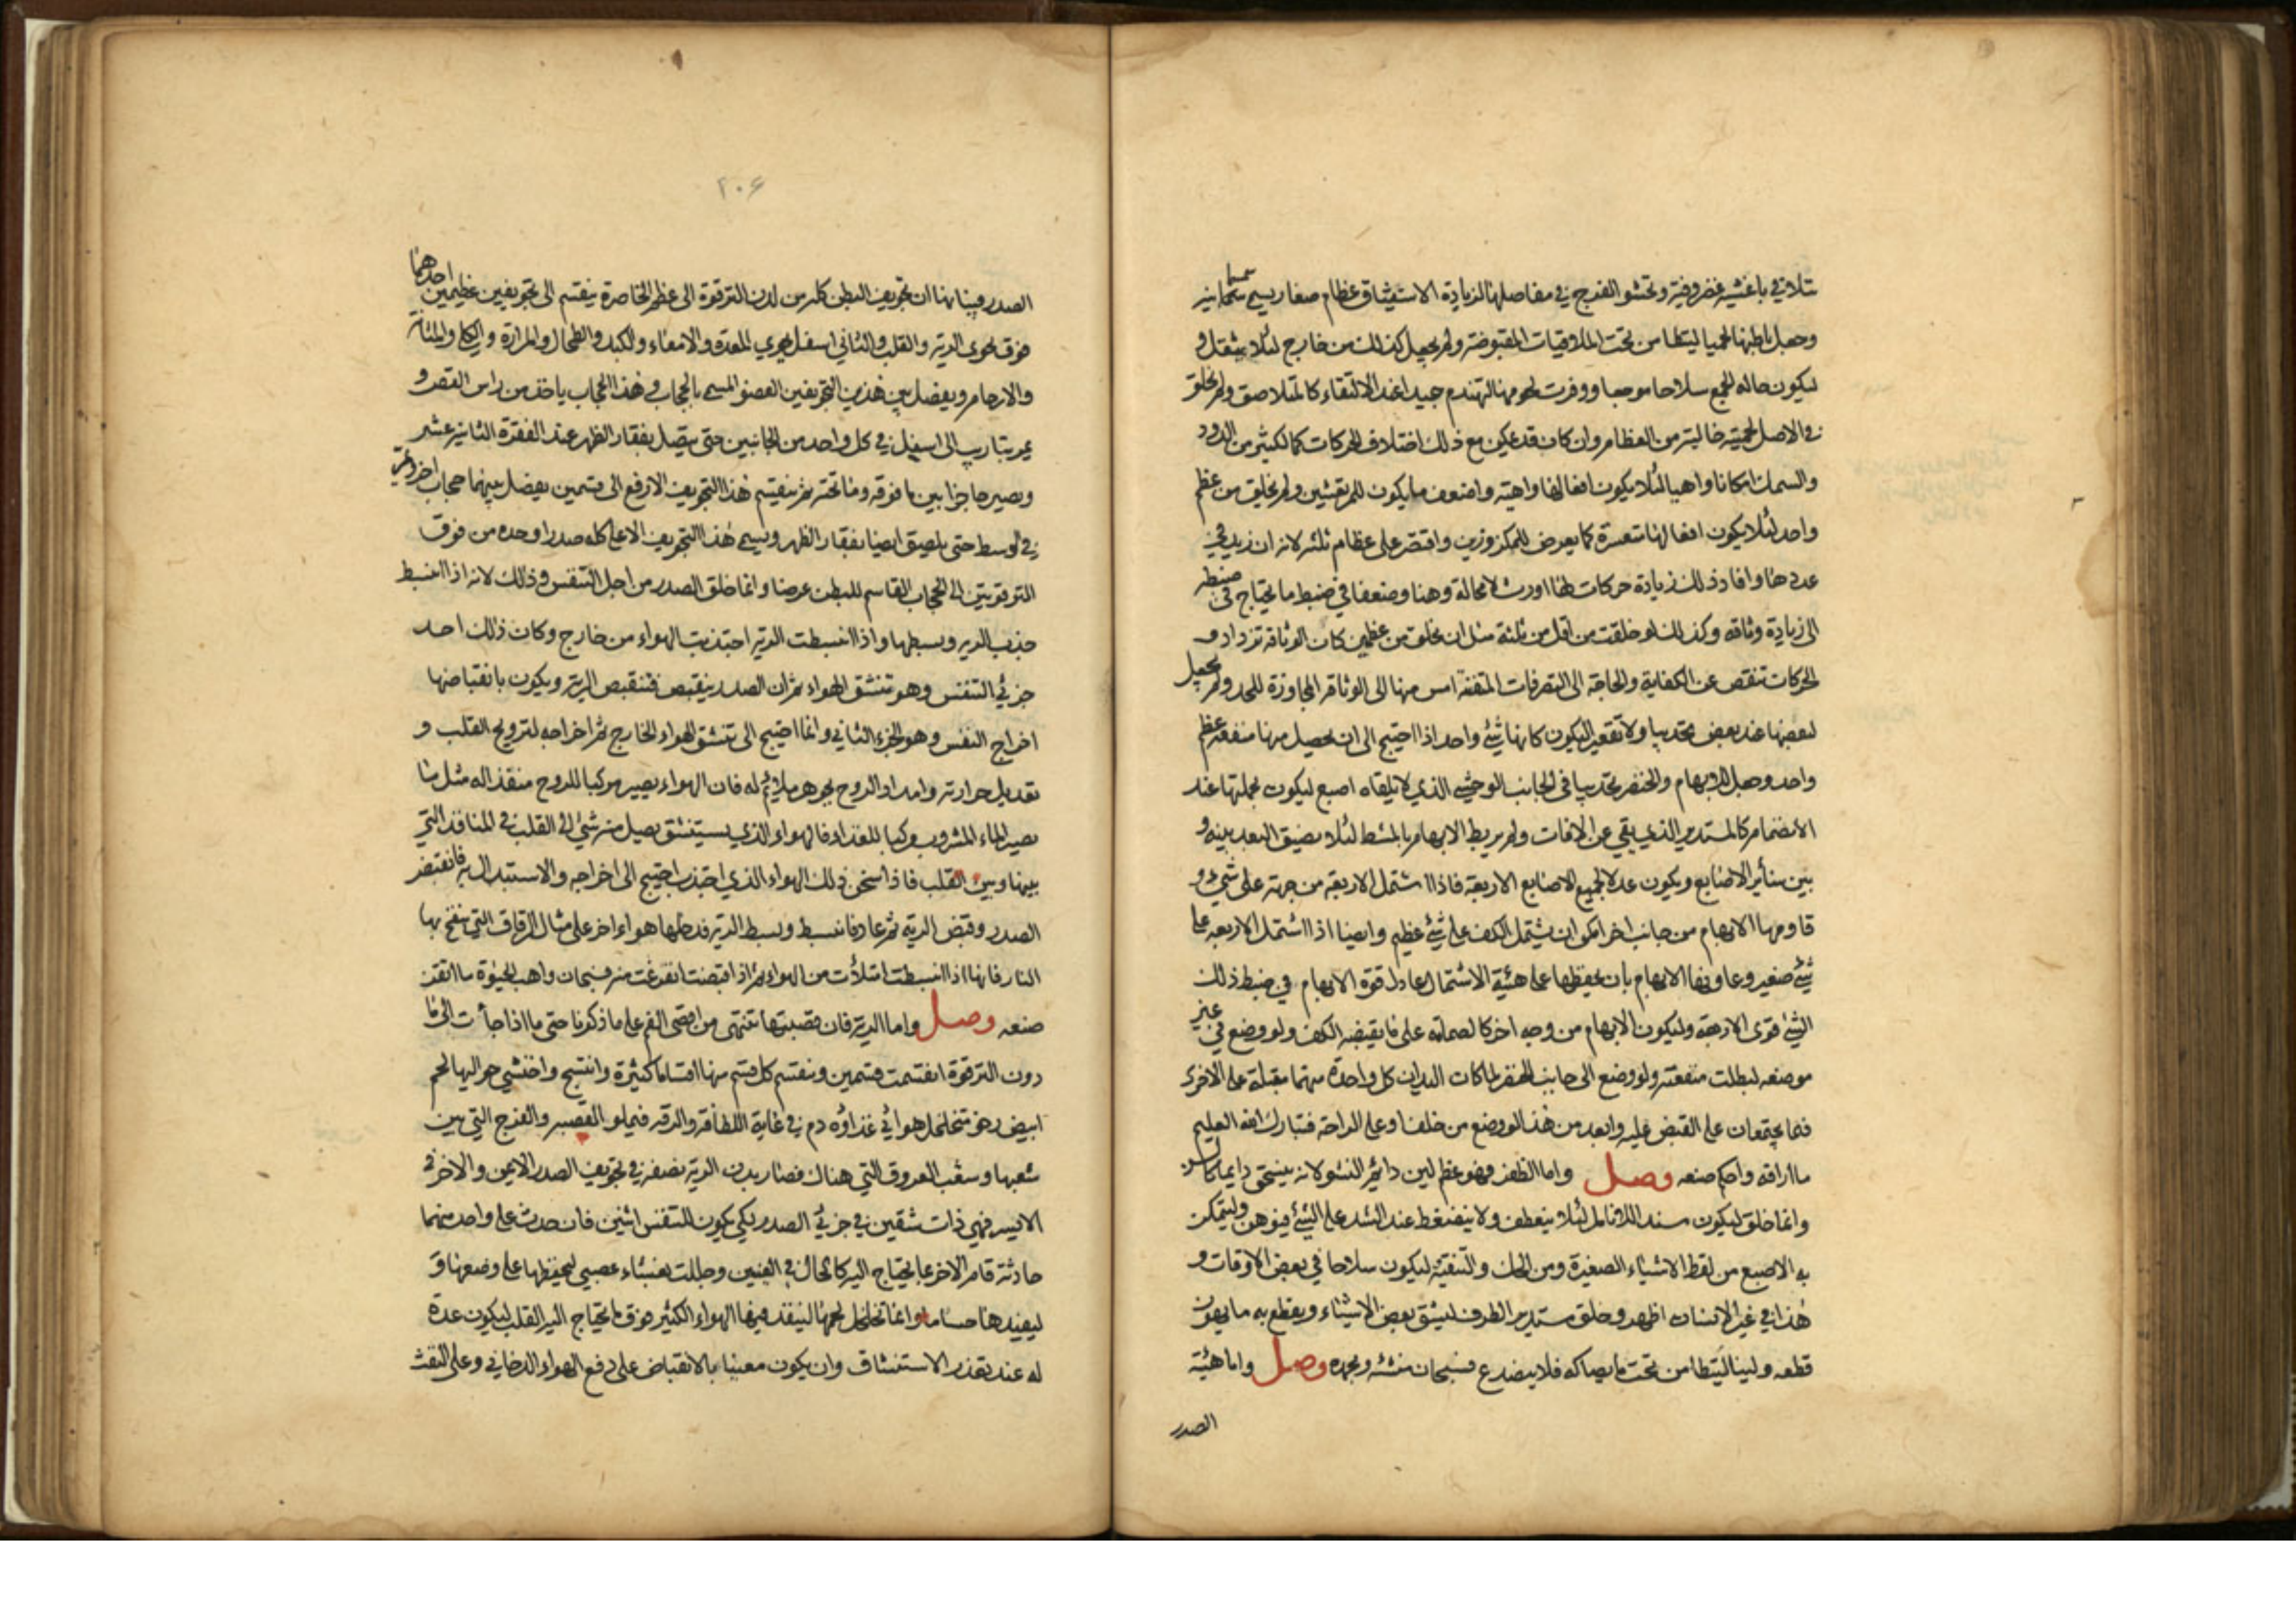 تتلاقى باغشية غضروفية وتحشو الفرج في مفاصلها لزيادة الاستيثاق عظام صغار يسمى سمسمانية
وجعل باطنها لحميا ليتطامن تحت الملاقيات المقبوضة ولم يجعل كذلك من خارج لئلا يثقل و
ليكون حاله الجمع سلاحا موجعا ووفرت لحومها لتهندم جيدا عند الالتقاء كالمتلاصق ولم يخلق
في الاصل لحمية خالية من العظام وان كان قد يمكن مع ذلك اختلاف الحركات كما لكثير من الدود
والسمك امكانا واهيا لئلا يكون افعالها واهية واضعف ما يكون للمرتعشين ولم يخلق من عظم
واحد لئلا يكون افعالها متعسرة كما يعرض للمكزوزين واقتصر على عظام ثلثة لانه ان زيد في
عددها وافاد ذلك زيادة حركات لها اورث لا محالة وهنا وضعفا في ضبط ما يحتاج في ضبطه
الى زيادة وثاقه وكذلك لو خلقت من اقل من ثلثة مثل ان يخلق من عظمين كان الوثاقة تزداد و
الحركات تنقص عن الكفاية والحاجة الى التصرفات المتفننة امس منها الى الوثاقة المجاوزة للحد ولم يجعل
لبعضها عند بعض تحديبا ولا تقعيرا ليكون كانها شئ واحد اذا احتيج الى ان يحصل منها منفعة عظم
واحد وجعل للابهام والخنصر تحديبا في الجانب الوحشي الذي لا يلقاه اصبع ليكون بجملتها عند
الانضمام كالمستدير الذي يقي عن الافات ولم يربط الابهام بالمشط لئلا يضيق البعد بينه و
بين سائر الاصابع ويكون عدلا لجميع الاصابع الاربعة فاذا اشتمل الاربعة من جهة على شئ و
قاومها الابهام من جانب اخر امكن ان يشتمل الكف على شئ عظيم وايضا اذا اشتمل الاربعه على
شئ صغير وعاونها الابهام بان يحفظها على هيئة الاشتمال عادل قوة الابهام في ضبط ذلك
الشئ قوى الاربعة وليكون الابهام من وجه اخر كالصمامه على ما يقبضه الكف ولو وضع في غير
موضعه لبطلت منفعته ولو وضع الى جانب الخنصر لما كانت اليدان كل واحدة منهما مقبلة على الاخرى
فيما يجتمعان على القبض عليه وابعد من هذا لو وضع من خلف او على الراحة فتبارك الله العليم
ما اراقه واحكم صنعه وصل واما الظفر فهو عظم لين دايم النشو لانه ينسحق دايما كالسن
وانما خلق ليكون سندا للانامل لئلا ينعطف ولا ينضغط عند الشد على الشئ فيوهن وليتمكن
به الاصبع من لقط الاشياء الصغيرة ومن الحك والتنقية ليكون سلاحا في بعض الاوقات و
هذا في غير الانسان اظهر وخلق مستدير الطرف ليشق بعض الاشياء ويقطع به ما يهون
قطعه ولينا ليتطامن تحت ما يصاكه فلا ينصدع فسبحان منشئه وبحمده وصل واما هيئة
الصدر
٢٠٦
الصدر فبيانها ان تجويف البطن كله من لدن الترقوة الى عظم الخاصرة ينقسم الى تجويفين عظيمين احدهما
فوق يحوى الرية والقلب والثاني اسفل يحوي المعدة والامعاء والكبد والطحال والمرارة والكلى والمثانة
والارحام ويفصل بين هذين التجويفين العضو المسمى بالحجاب وهذا الحجاب ياخذ من راس القص و
يمر بتاريب الى اسفل في كل واحد من الجانبين حتى يتصل بفقار الظهر عند الفقرة الثانية عشر
ويصير حاجزا بين ما فوقه وما تحته ثم ينقسم هذا التجويف الارفع الى قسمين يفصل بينهما حجاب اخر ويمر
في الوسط حتى يلصق ايضا بفقار الظهر ويسمى هذا التجويف الاعلى كله صدرا وحده من فوق
الترقوتين الى الحجاب القاسم للبطن عرضا وانما خلق الصدر من اجل التنفس وذلك لانه اذا انبسط
جذب الريه وبسطها واذا انبسطت الرية اجتذبت الهواء من خارج وكان ذلك احد
جزئي التنفس وهو تنشق الهواء ثم ان الصدر ينقبض فتنقبض الرية ويكون بانقباضها
اخراج النفس وهو الجزء الثاني وانما احتيج الى تنشق الهواء الخارج ثم اخراجه لترويح القلب و
تعديل حرارته وامداد الروح بجوهر ملائم له فان الهواء يصير مركبا للروح منفذا له مثل ما
يصير الماء المشروب مركبا للغذاء فالهواء الذي يستنشق يصل منه شئ الى القلب في المنافذ التي
بينها وبين القلب فاذا سخن ذلك الهواء الذي اجتذب احتيج الى اخراجه والاستبدال به فانقبض
الصدر وقبض الرية ثم عاد فانبسط وبسط الرية فدخلها هواء اخر على مثال الزقاق التي ينفخ بها
النار فانها اذا انبسطت امتلأت من الهواء ثم اذا قبضت انفرغت منه فسبحان واهب الحيوة ما اتقن
صنعه وصل واما الرية فان قصبتها تنتهى من اقصى الفم على ما ذكرنا حتى ما اذا جأت الى ما
دون الترقوة انقسمت قسمين وينقسم كل قسم منها اقساما كثيرة وانتسج واحتشي حواليها لحم
ابيض رخو متخلخل هوائي غذاؤه دم في غاية اللطافة والرقه فيملو القصبه والفرج التي بين
شعبها وشعب العروق التي هناك فصار بدن الرية نصفه في تجويف الصدر الايمن والاخر في
الايسر فهي ذات شقين في جزئي الصدر لكي يكون للتنفس اثنين فان حدث على واحد منهما
حادثة قام الاخر بما يحتاج اليه كالحال في العينين وجللت بغشاء عصبي ليحفظها على وضعها و
ليفيدها حسا ما وانما تخلخل لحمها لينفذ فيها الهواء الكثير فوق ما يحتاج اليه القلب ليكون عدة
له عند تعذر الاستنشاق وان يكون معينا بالانقباض على دفع الهواء الدخاني وعلى النفث